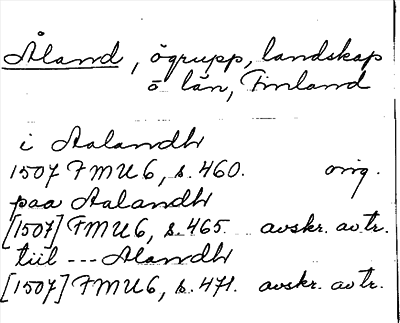 Åland, ögrupp, landskap
o län, Finland
i Aalandh
1507 FMU 6, s. 460. orig.
paa Aalandh
[1507] FMU 6, s. 465. avskr. av tr.
tiil --- Alandh
[1507] FMU 6, s. 471. avskr. av tr.